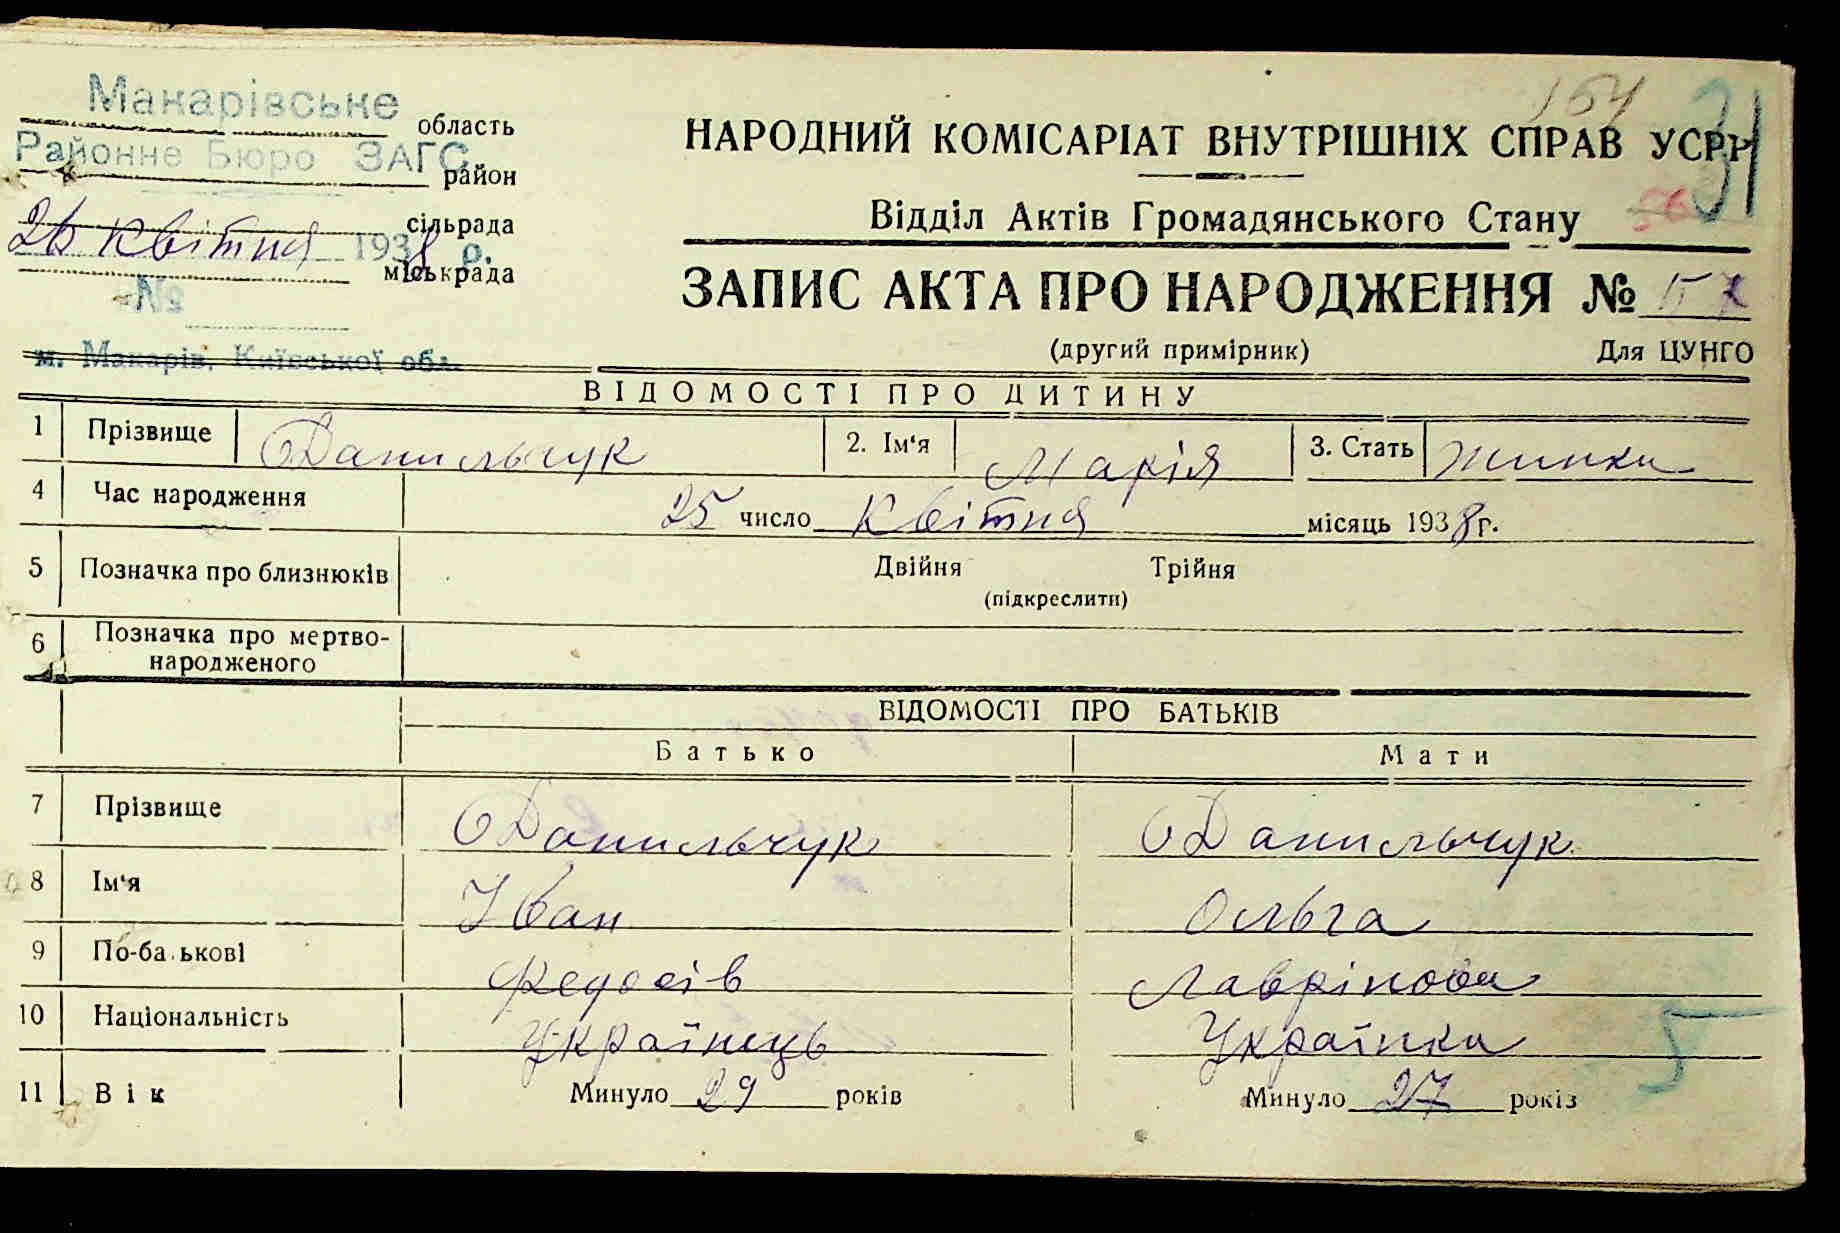 Макарівське
область
Районне Бюро ЗАГС
район
сільрада
26 квітня 1938 р.
міськрада
№
м. Макарів, Київської обл.
154 31
НАРОДНИЙ КОМІСАРІАТ ВНУТРІШНІХ СПРАВ УСРР
56
Відділ Актів Громадянського Стану
ЗАПИС АКТА ПРО НАРОДЖЕННЯ № 157
(другий примірник) Для ЦУНГО
ВІДОМОСТІ ПРО ДИТИНУ
1 Прізвище Данильчук 2. Ім'я Марія 3. Стать жинка
4 Час народження 25 число квітня місяць 1938 г.
5 Позначка про близнюків Двійня Трійня
(підкреслити)
6 Позначка про мертво-
народженого
ВІДОМОСТІ ПРО БАТЬКІВ
Батько Мати
7 Прізвище Данильчук Данильчук
8 Ім'я Іван Ольга
9 По-батькові Федосів Лаврінова
10 Національність Українець Українка 5
11 Вік Минуло 29 років Минуло 27 років